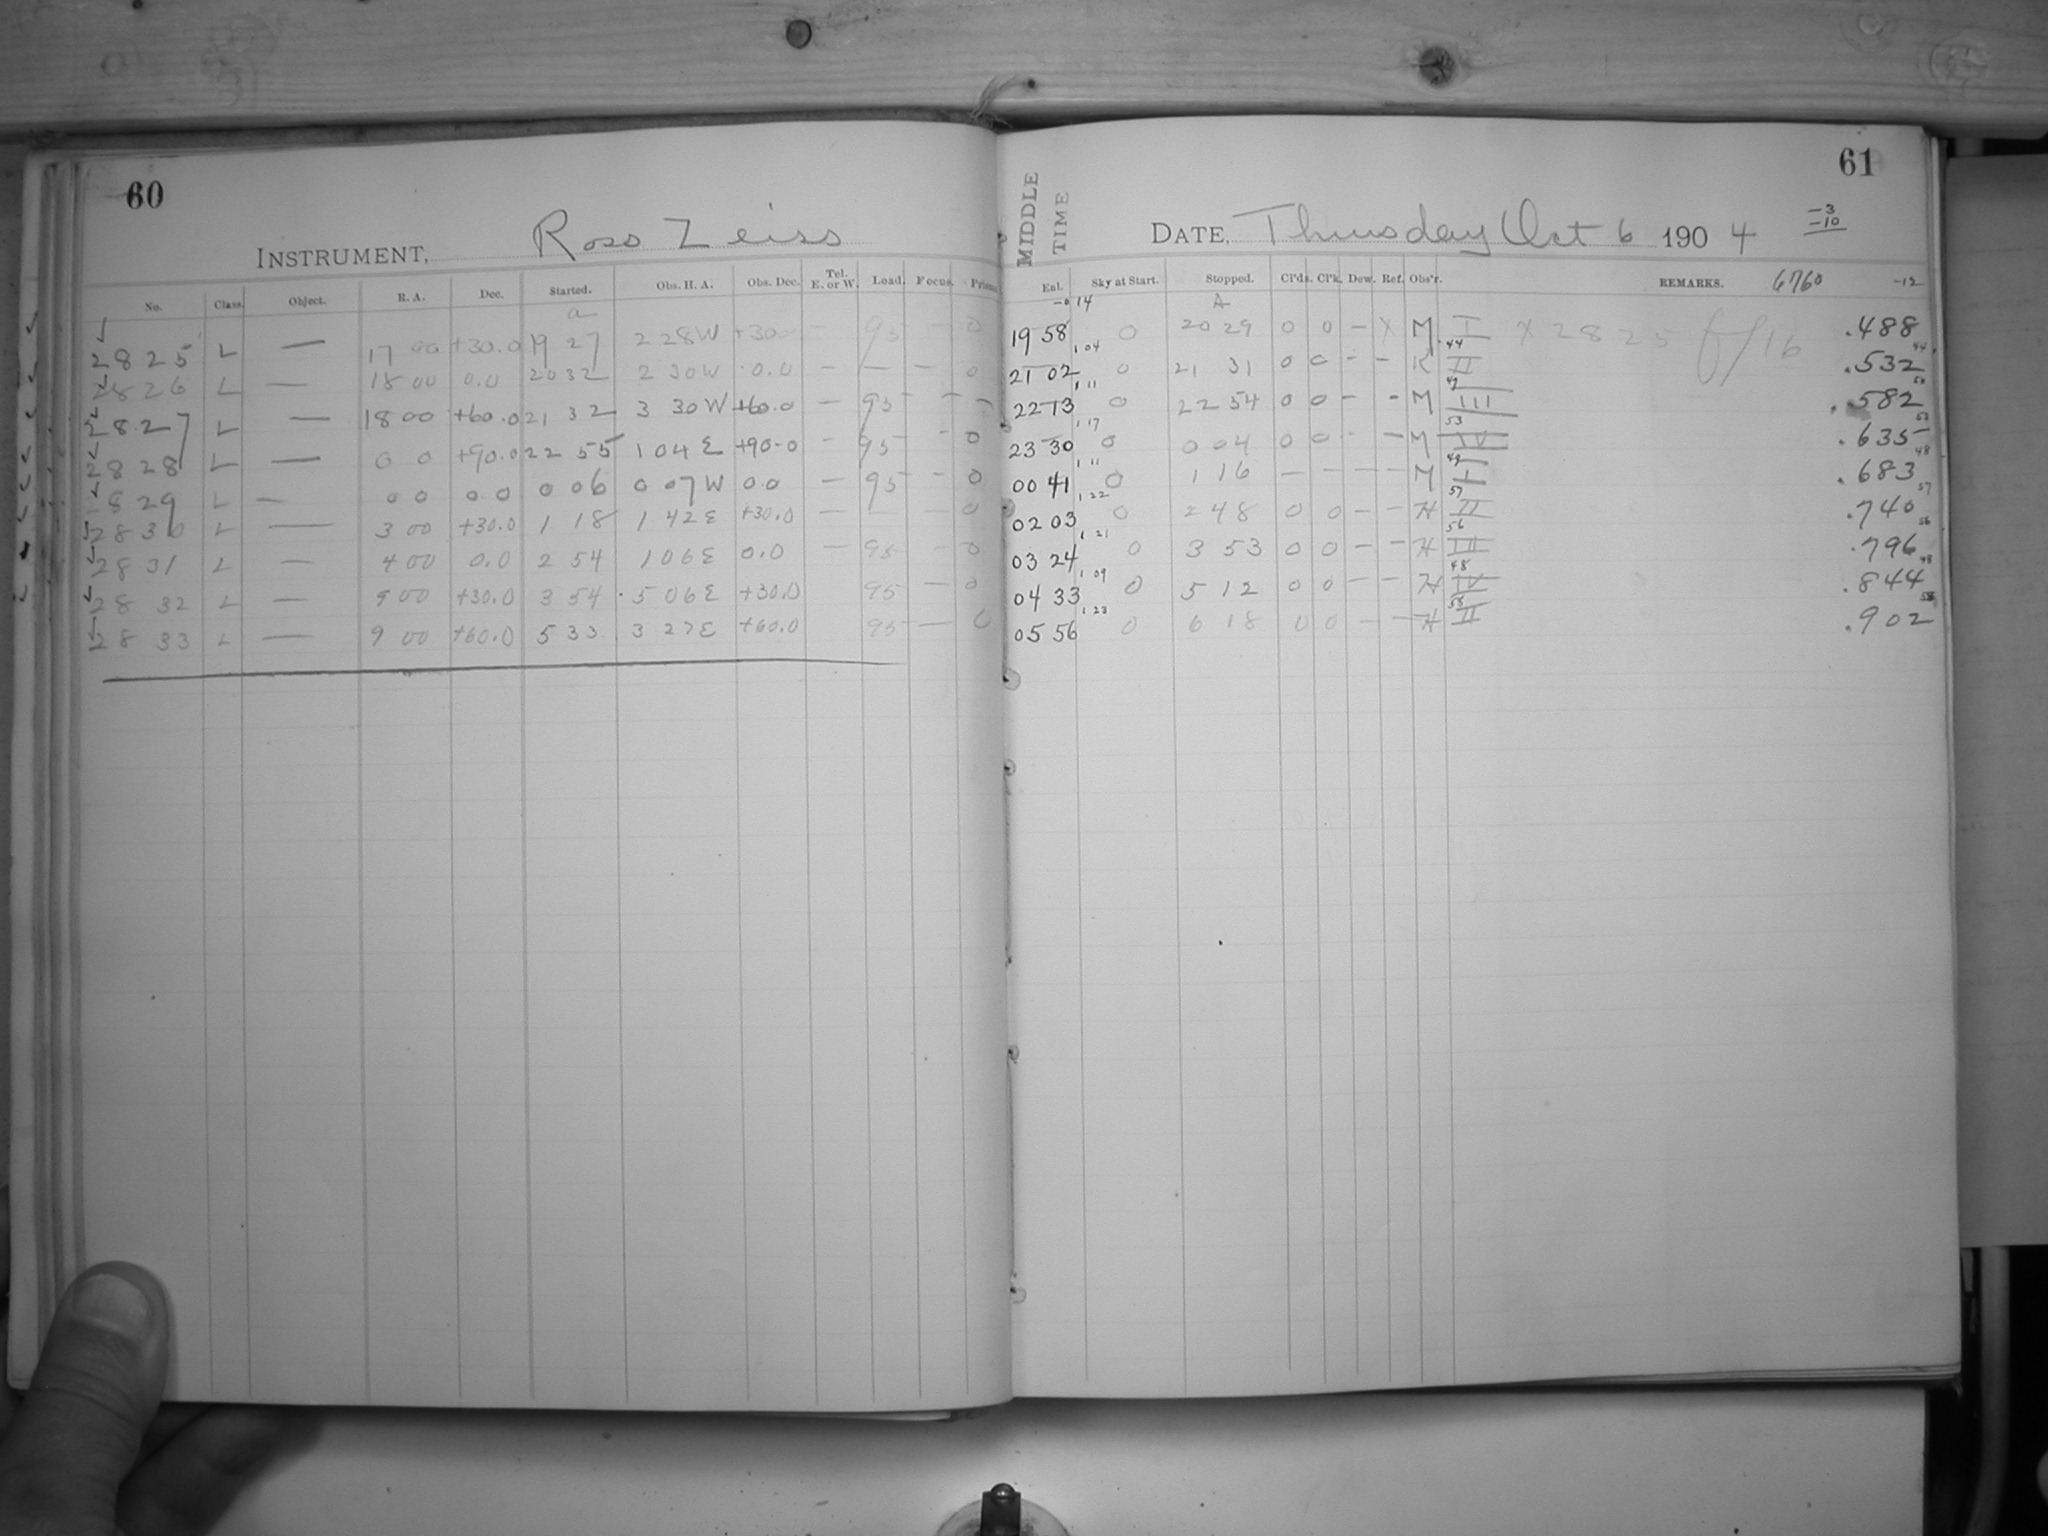 60
INSTRUMENT, Ross Zeiss
No. Class. Object. R. A. Dec. Started. Obs. H. A. Obs. Dec. Tel. E. or W. Load. Focus. Prism
a
2825 L — 17 00 +30.0 19 27 2 28W +30.0 — 95 — 0
2826 L — 18 00 0.0 20 32 2 30W 0.0 — — — 0
2827 L — 18 00 +60.0 21 32 3 30W +60.0 — 95 — —
2828 L — 0 0 +90.0 22 55 1 04E +90.0 — 95 — 0
2829 L — 0 0 0.0 0 06 0 07W 0.0 — 95 — 0
2830 L — 3 00 +30.0 1 18 1 42E +30.0 — — — 0
2831 L — 4 00 0.0 2 54 1 06E 0.0 — 95 — 0
2832 L — 9 00 +30.0 3 54 5 06E +30.0 95 — 0
2833 L — 9 00 +60.0 5 33 3 27E +60.0 95 — 0
61
MIDDLE TIME
DATE, Thursday Oct 6 1904 -3 -10
Ent. Sky at Start. Stopped. Cl'ds. Cl'k. Dew. Ref. Obs'r. REMARKS. 6760 -12
-0 14 A
19 58 0 20 29 0 0 — X M I X 2825 f/16 .488
1 04 44 44
21 02 0 21 31 0 0 — — K II .532
1 11 49 50
22 13 0 22 54 0 0 — - M III .582
1 17 53 53
23 30 0 0 04 0 0 — — M IV .635
1 11 49 48
00 41 0 1 16 — — — — M I .683
1 22 57 57
02 03 0 2 48 0 0 — — H II .740
1 21 56 56
03 24 0 3 53 0 0 — — H III .796
1 09 48 48
04 33 0 5 12 0 0 — — H IV .844
1 23 58 58
05 56 0 6 18 0 0 — — H II .902